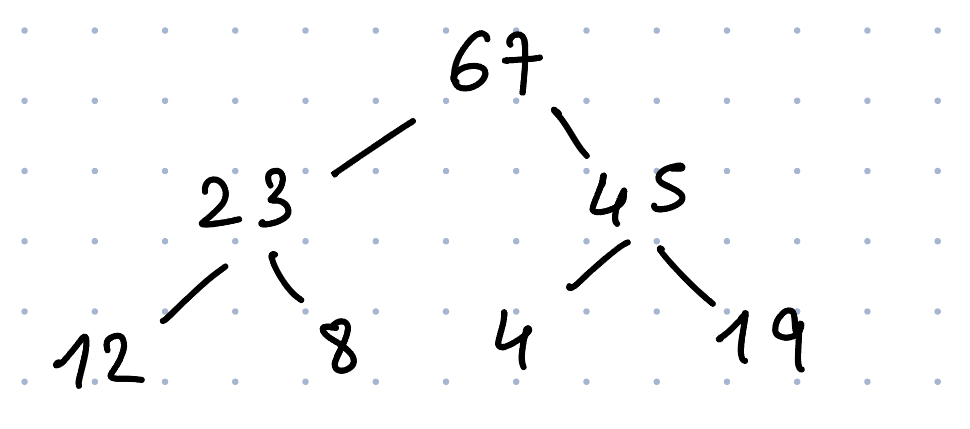 67
23 45
12 8 4 19